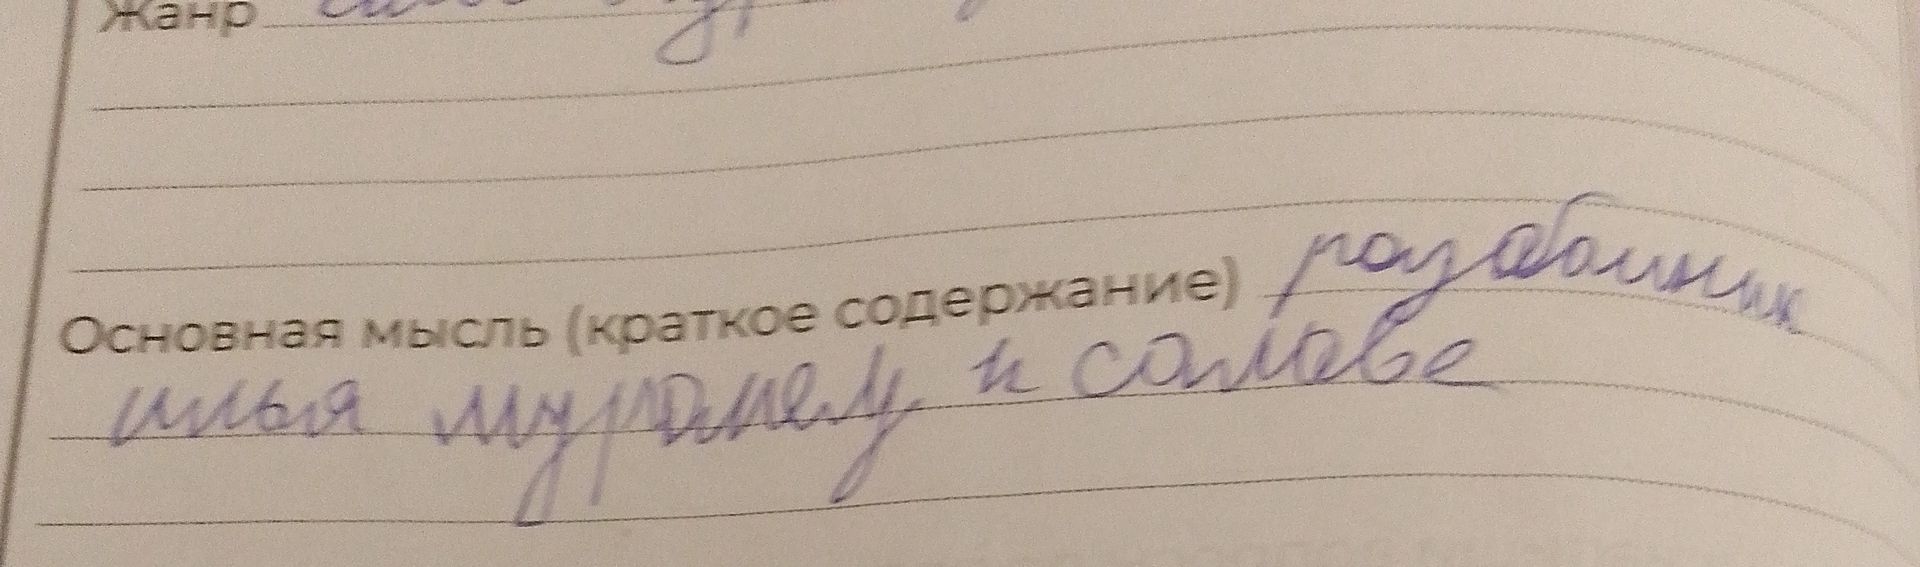 Жанр
Основная мысль (краткое содержание) разабоиник
илья муромец и солове